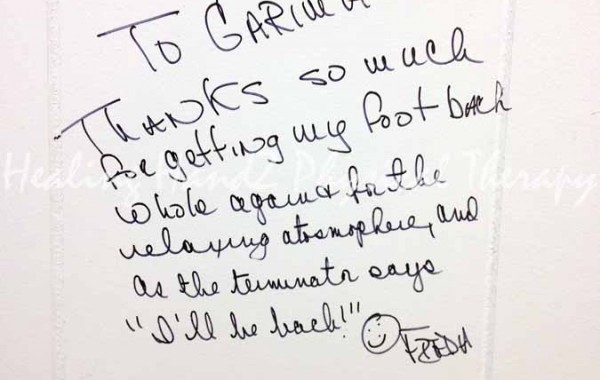 To GARIMA
THANKS so much
for getting my foot back
whole again & for the
relaxing atosmophere, and
as the terminator says
"I'll be back!"
FREDA
Healing Handz Physical Therapy